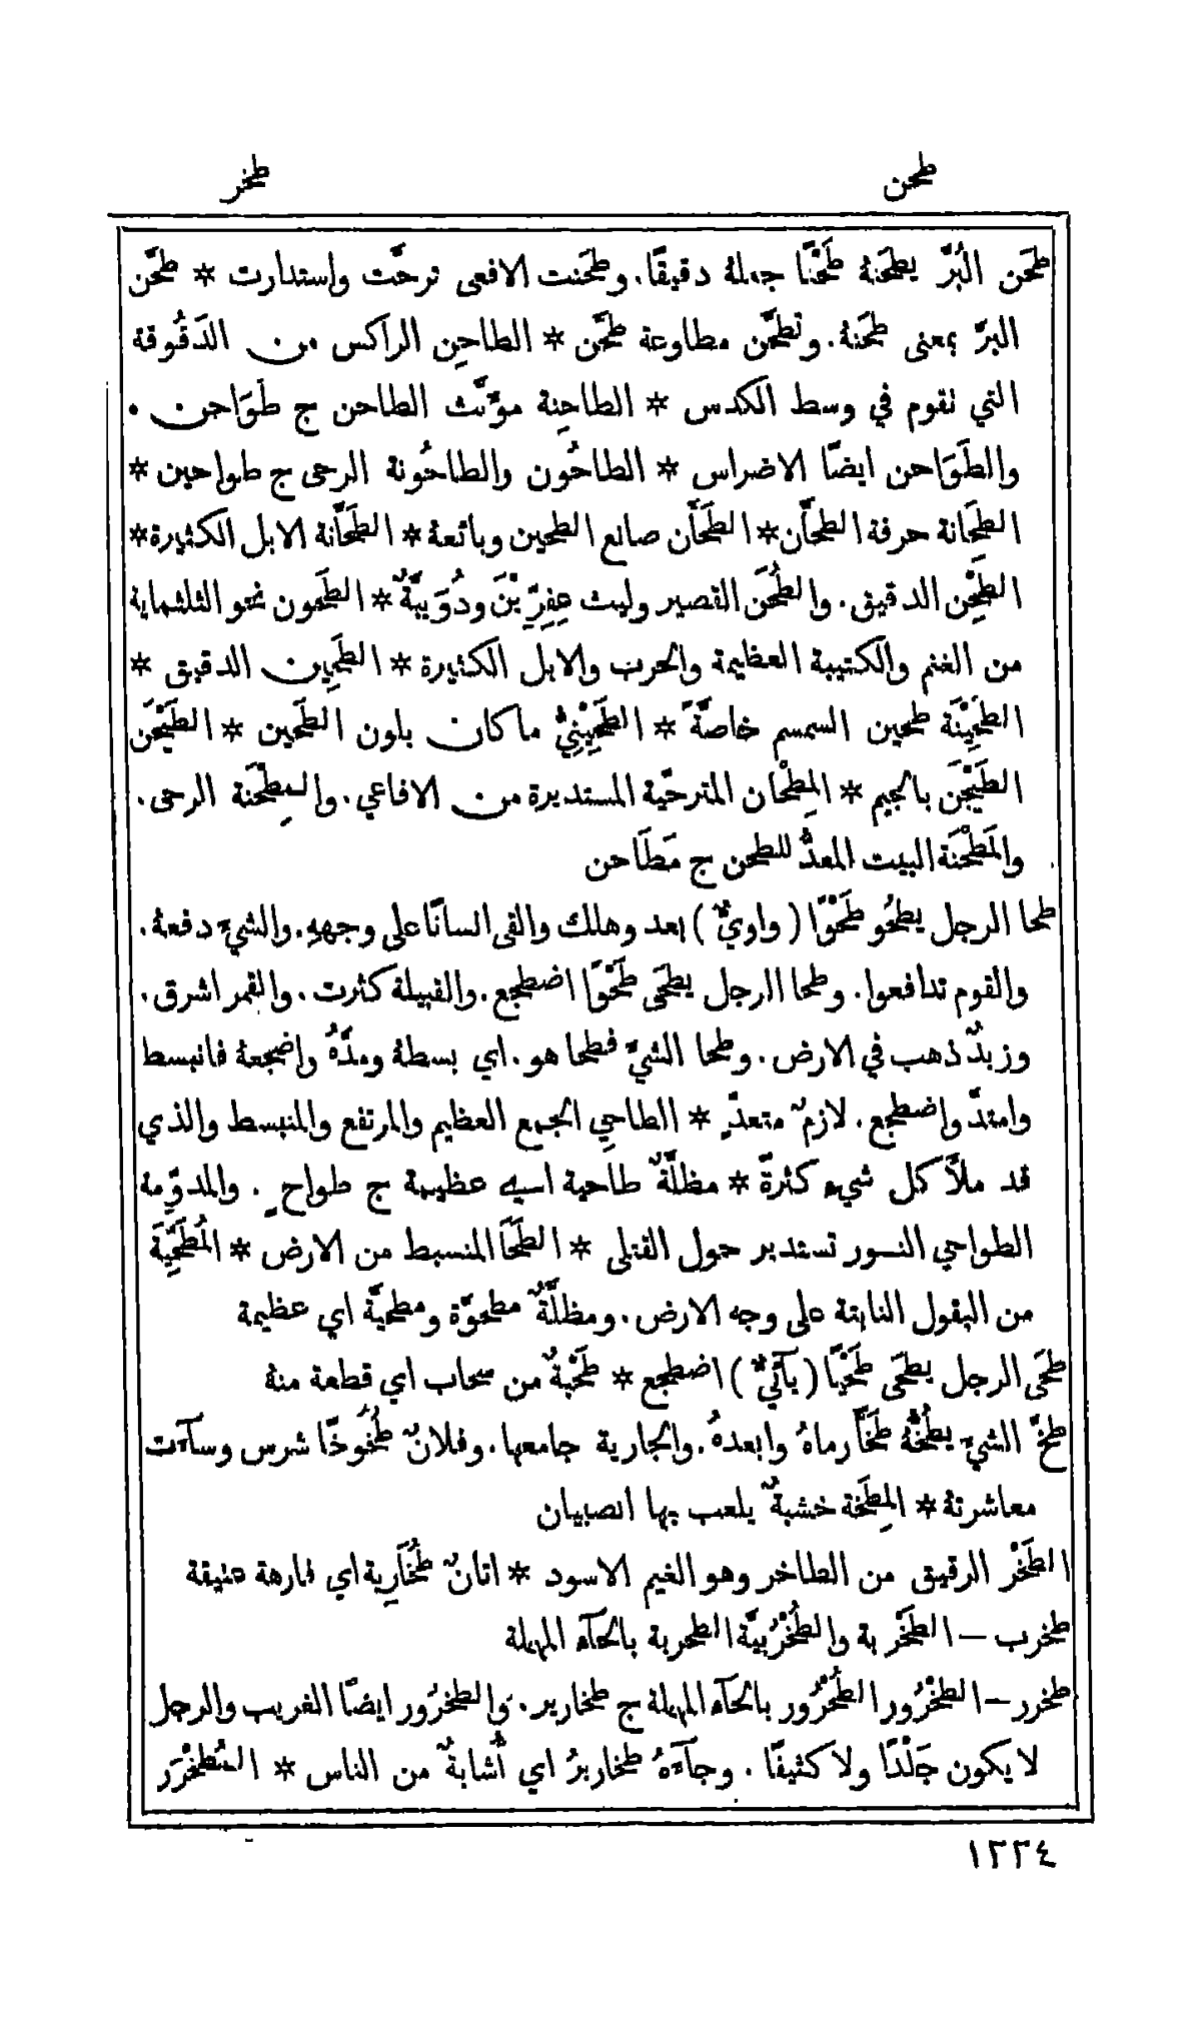 طحن
طخر
طَحَن البُرَّ يطحَنهُ طَحْنًا جعلهُ دقيقًا. وطحَنت الافعى ترحَّت واستدارت * طحَّن
البرَّ بمعنى طحَنهُ. وتطحَّن مطاوعة طحَّن * الطاحِن الراكس من الدَقُوقة
التي تقوم في وسط الكدس * الطاحِنة مؤنَّث الطاحن ج طَوَاحن.
والطَوَاحن ايضًا الاضراس * الطاحُون والطاحُونة الرحى ج طواحين *
الطِحَانة حرفة الطحَّان * الطَحَّان صانع الطحين وبائعهُ * الطَحَّانة الابل الكثيرة *
الطِحْن الدقيق. والطُحَن القصير وليث عِفِرِّيْنَ ودُوَيبَّةٌ * الطَحُون نحو الثلثماية
من الغنم والكتيبة العظيمة والحرب والابل الكثيرة * الطَحِين الدقيق *
الطَحِيْنَة طحين السمسم خاصَّةً * الطَحِيْنِيُّ ما كان بلون الطَحين * الطَيْحَن
الطَيْجَن بالجيم * المِطْحان المترحّية المستديرة من الافاعي. والمِطحَنة الرحى.
والمَطْحَنَة البيت المعدُّ للطحن ج مَطَاحن
طحا الرجل يطحُو طَحْوًا (واويٌّ) بعد وهلك والقى انسانًا على وجههِ. والشيءَ دفعهُ.
والقوم تدافعوا. وطحا الرجل يطحَى طَحْوًا اضطجع. والقبيلة كثرت. والقمر اشرق.
وزيدٌ ذهب في الارض. وطحا الشيءَ فطحا هو. اي بسطهُ ومدَّهُ واضجعهُ فانبسط
وامتدَّ واضطجع. لازمٌ متعدٍّ * الطاحِي الجمع العظيم والمرتفع والمنبسط والذي
قد ملأَ كل شيءٍ كثرةً * مظلَّةٌ طاحية اي عظيمة ج طواحٍ. والمدوِّمة
الطواحي النسور تستدير حول القتلى * الطَحَا المنبسط من الارض * المُطَحِّيَة
من البقول النابتة على وجه الارض. ومظلَّةٌ مطحوَّة ومطحيَّة اي عظيمة
طحَى الرجل يطحَى طَحْيًا (يآئيٌّ) اضطجع * طَحْيةٌ من سحاب اي قطعة منهُ
طخَّ الشيءَ يطُخُّهُ طَخًّا رماهُ وابعدهُ. والجارية جامعها. وفلانٌ طُخُوخًا شرس وسآءت
معاشرتهُ * المِطَخة خشبةٌ يلعب بها الصبيان
الطَخْر الرقيق من الطاخر وهو الغيم الاسود * اتانٌ طُخَارِية اي فارهة عتيقة
طخرب – الطَخْربة والطُخْرُبيَّة الطحربة بالحآء المهملة
طخرر – الطخْرُور الطُحْرُور بالحآء المهملة ج طخارير. والطخرُور ايضًا الغريب والرجل
لا يكون جَلْدًا ولا كثيفًا. وجآءَهُ طخاريرُ اي أُشابةٌ من الناس * المُتطخْرَر
١٢٢٤